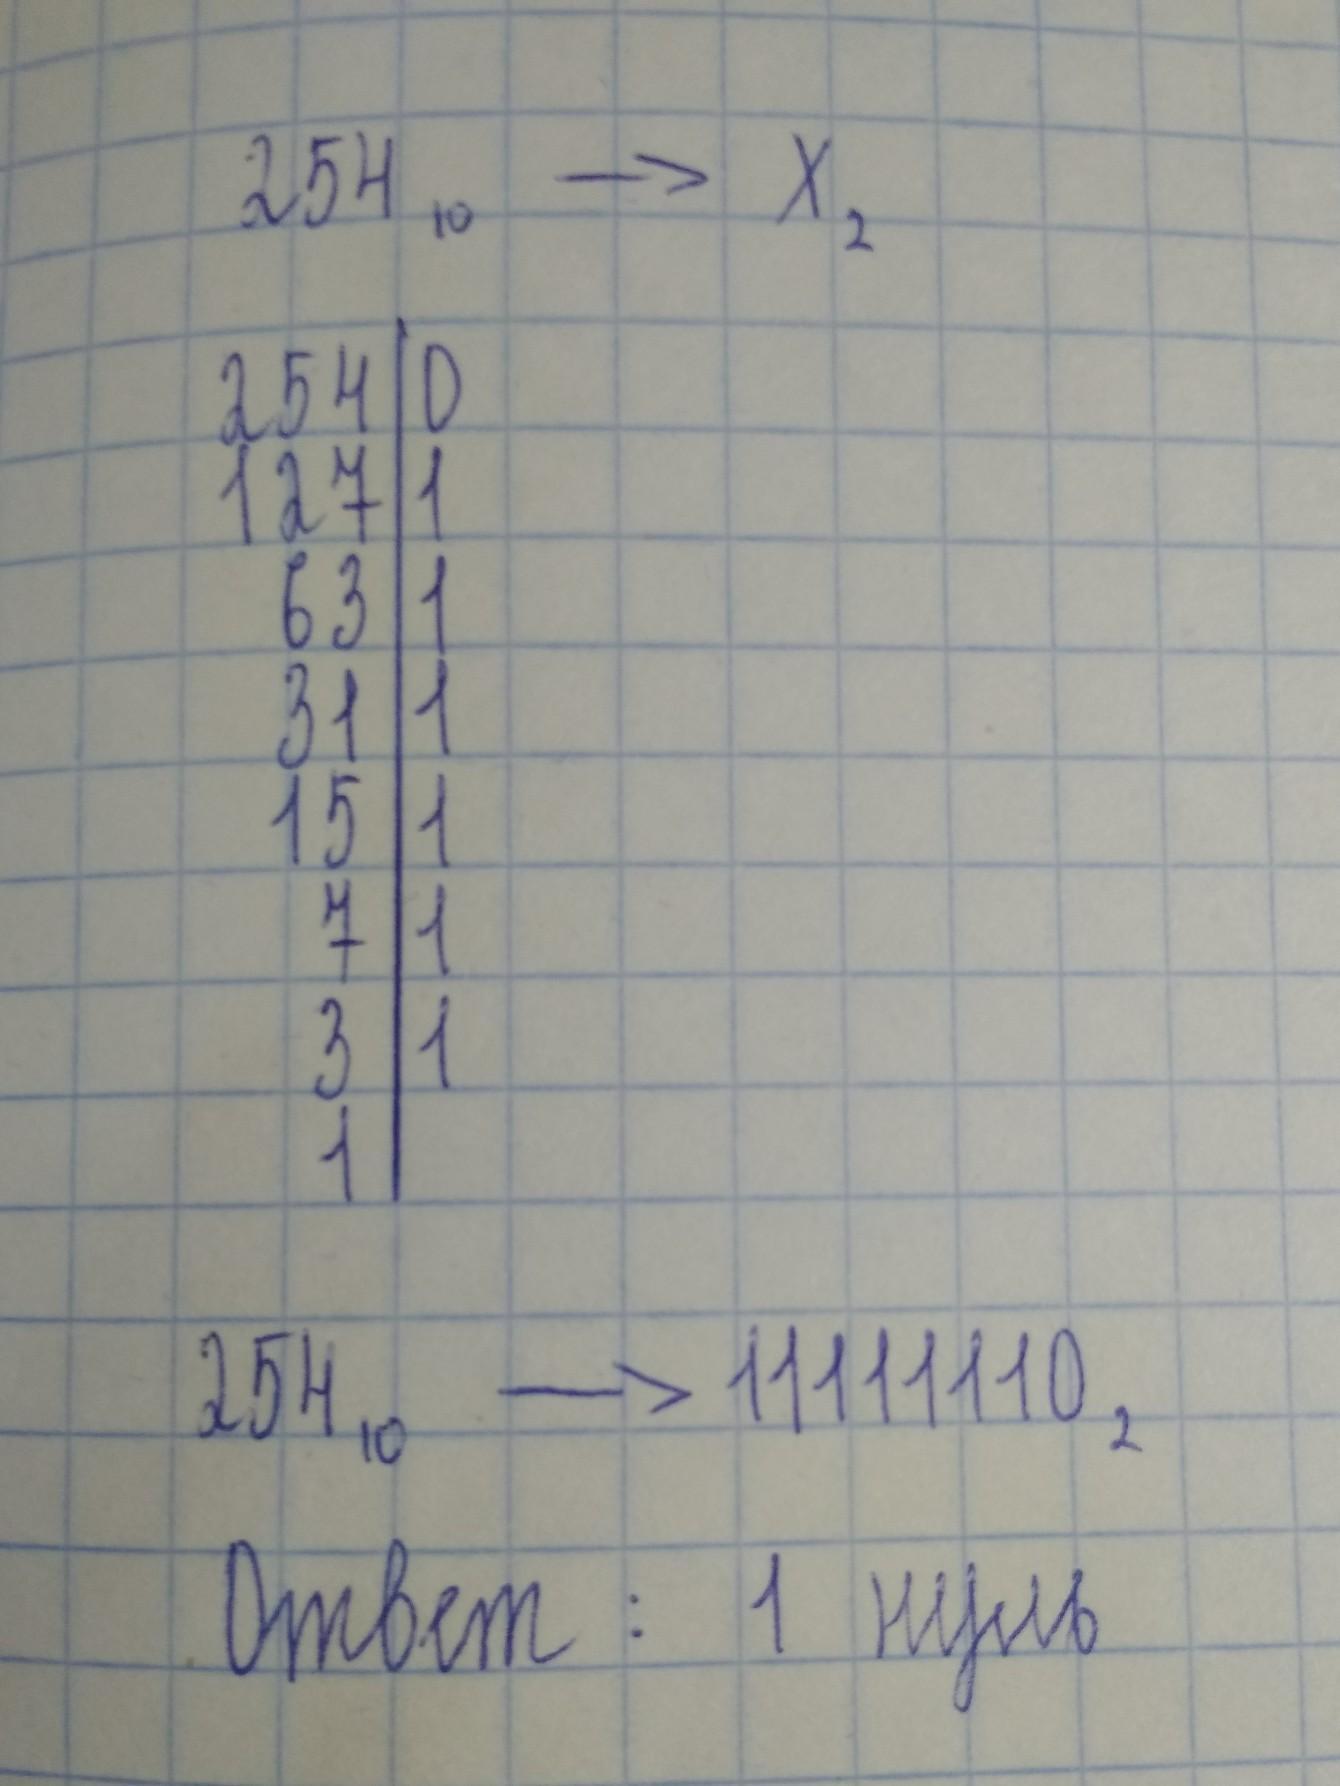 254₁₀ → X₂
254|0
127|1
63|1
31|1
15|1
7|1
3|1
1|
254₁₀ → 11111110₂
Ответ : 1 нуль